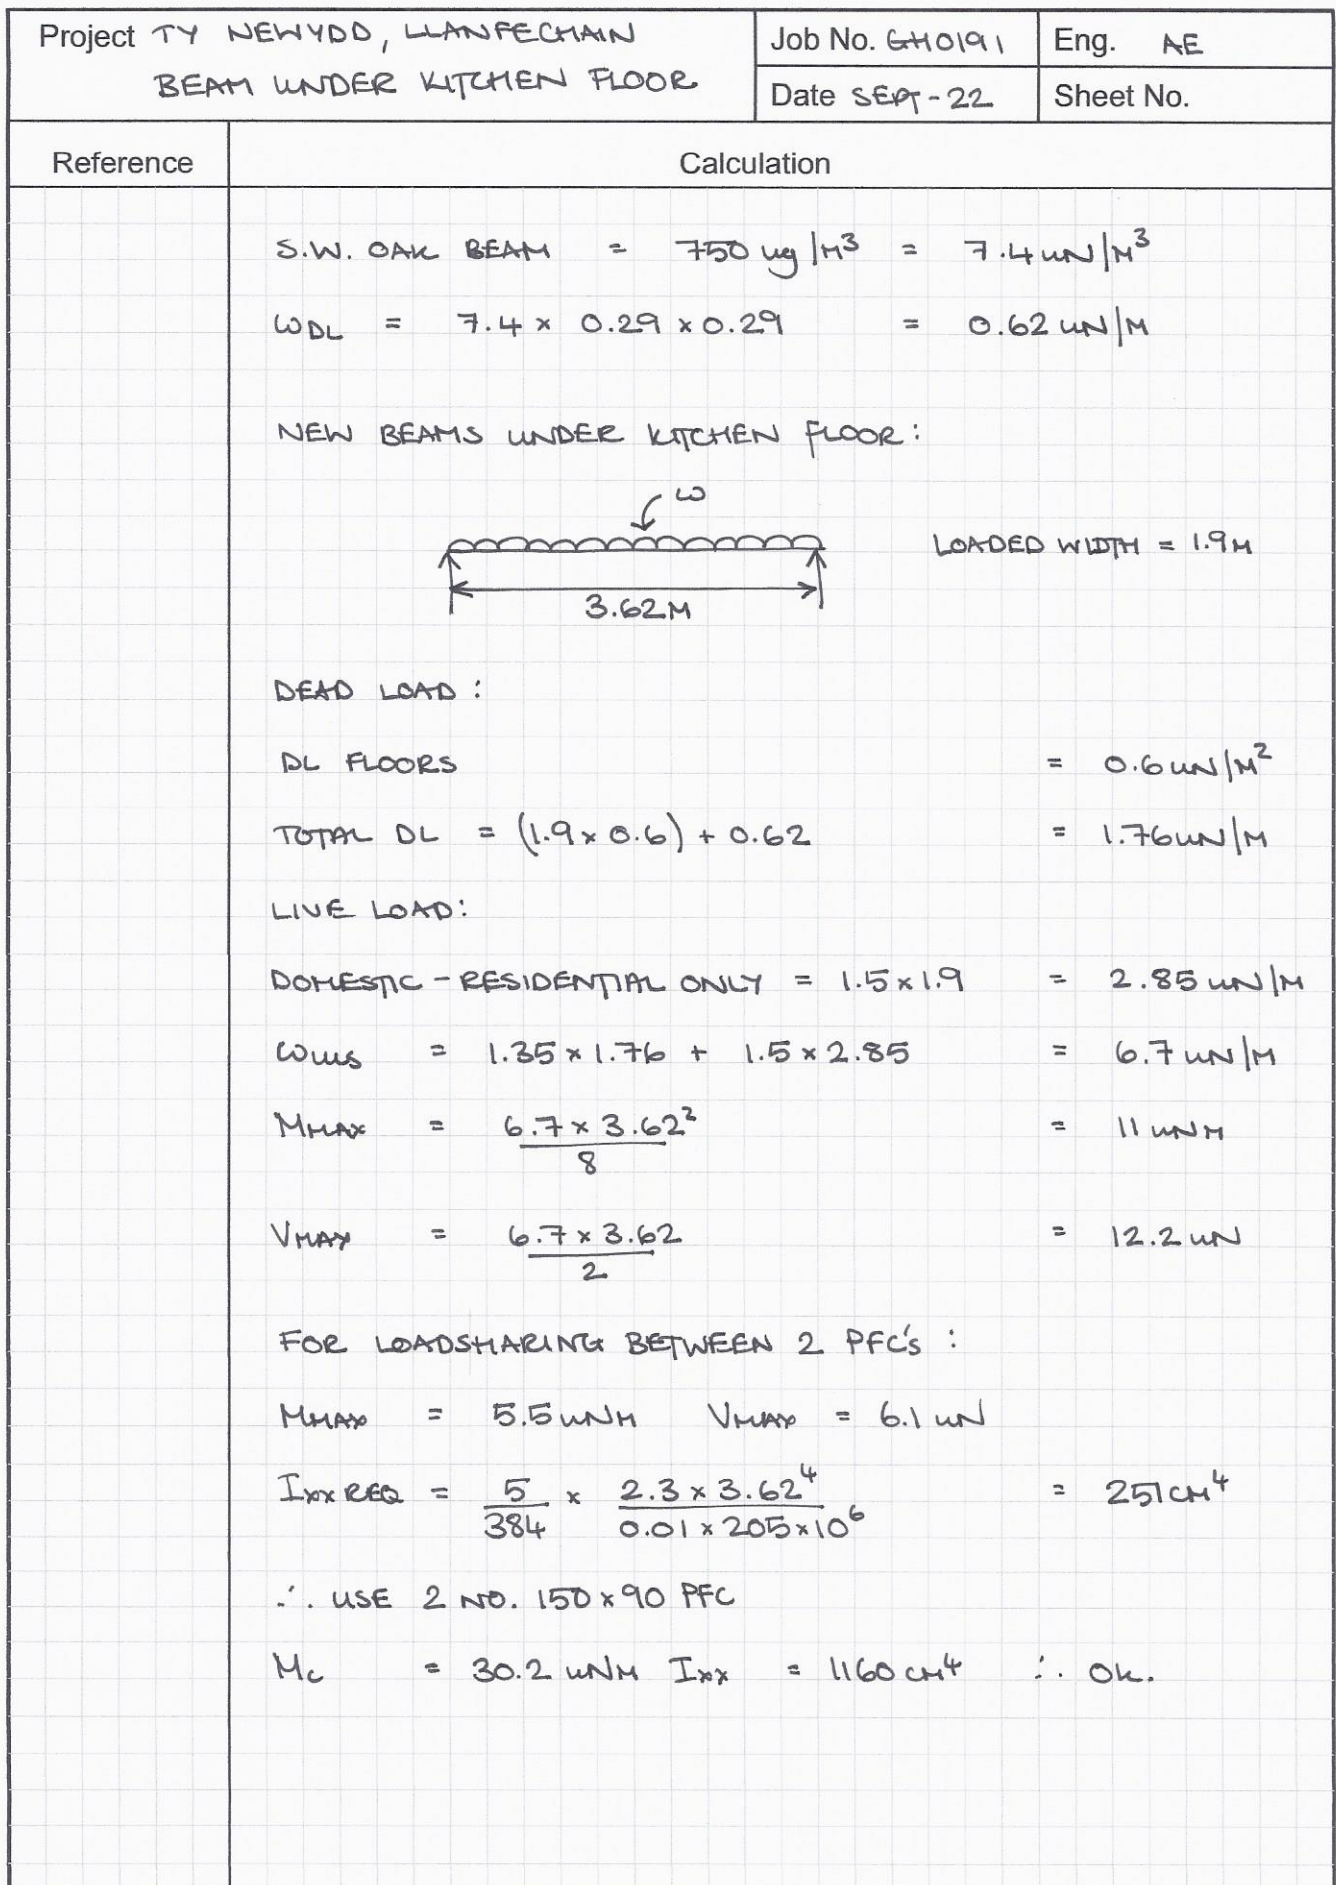 Project TY NEWYDD, LLANFECHAIN
BEAM UNDER KITCHEN FLOOR
Job No. GH0191
Eng. AE
Date SEPT-22
Sheet No.
Reference
Calculation
S.W. OAK BEAM = 750 kg/m³ = 7.4 kN/m³
ωDL = 7.4 x 0.29 x 0.29 = 0.62 kN/m
NEW BEAMS UNDER KITCHEN FLOOR:
ω
LOADED WIDTH = 1.9m
3.62m
DEAD LOAD:
DL FLOORS = 0.6 kN/m²
TOTAL DL = (1.9 x 0.6) + 0.62 = 1.76 kN/m
LIVE LOAD:
DOMESTIC - RESIDENTIAL ONLY = 1.5 x 1.9 = 2.85 kN/m
ωULS = 1.35 x 1.76 + 1.5 x 2.85 = 6.7 kN/m
MMAX = 6.7 x 3.62² / 8 = 11 kNm
VMAX = 6.7 x 3.62 / 2 = 12.2 kN
FOR LOADSHARING BETWEEN 2 PFC's:
MMAX = 5.5 kNm VMAX = 6.1 kN
Ixx REQ = 5/384 x 2.3 x 3.62⁴ / 0.01 x 205 x 10⁶ = 251 cm⁴
∴ USE 2 NO. 150 x 90 PFC
Mc = 30.2 kNm Ixx = 1160 cm⁴ ∴ OK.